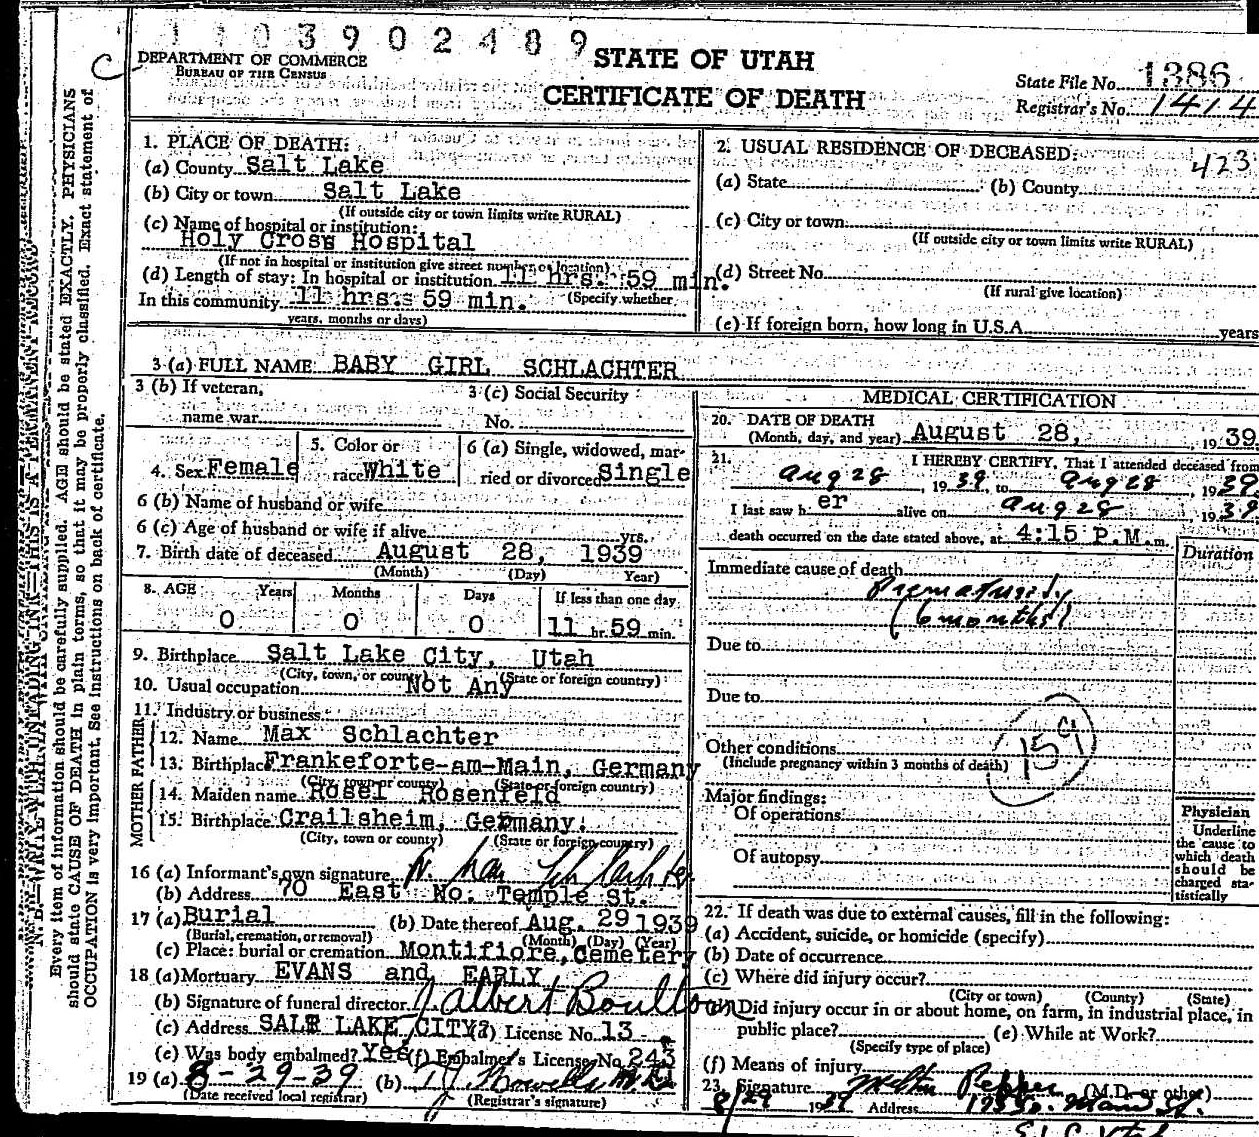 1 1 0 3 9 0 2 4 8 9
DEPARTMENT OF COMMERCE
BUREAU OF THE CENSUS
STATE OF UTAH
CERTIFICATE OF DEATH
State File No. 1386
Registrar's No. 1414
1. PLACE OF DEATH:
(a) County Salt Lake
(b) City or town Salt Lake
(If outside city or town limits write RURAL)
(c) Name of hospital or institution:
Holy Cross Hospital
(If not in hospital or institution give street number or location)
(d) Length of stay: In hospital or institution 11 hrs. 59 min.
In this community 11 hrs. 59 min. (Specify whether
years, months or days)
2. USUAL RESIDENCE OF DECEASED:
423
(a) State (b) County
(c) City or town
(If outside city or town limits write RURAL)
(d) Street No.
(If rural give location)
(e) If foreign born, how long in U.S.A. years
3 (a) FULL NAME: BABY GIRL SCHLACHTER
3 (b) If veteran, name war
3 (c) Social Security No.
4. Sex Female
5. Color or race White
6 (a) Single, widowed, married or divorced Single
6 (b) Name of husband or wife
6 (c) Age of husband or wife if alive yrs.
7. Birth date of deceased August 28, 1939
(Month) (Day) Year)
8. AGE Years Months Days If less than one day
0 0 0 11 hr. 59 min.
9. Birthplace Salt Lake City, Utah
(City, town, or county) (State or foreign country)
10. Usual occupation Not Any
11. Industry or business
FATHER
12. Name Max Schlachter
13. Birthplace Frankeforte-am-Main, Germany
(City, town or county) (State or foreign country)
MOTHER
14. Maiden name Rosel Rosenfeld
15. Birthplace Crailsheim, Germany.
(City, town or county) (State or foreign country)
16 (a) Informant's own signature
(b) Address 70 East No. Temple St.
17 (a) Burial (b) Date thereof Aug. 29 1939
(Burial, cremation, or removal) (Month) (Day) (Year)
(c) Place: burial or cremation Montifiore, Cemetery
18 (a) Mortuary EVANS and EARLY
(b) Signature of funeral director J. Albert Boulton
(c) Address SALT LAKE CITY (d) License No. 13
(e) Was body embalmed? Yes (f) Embalmer's License No. 243
19 (a) 8-29-39 (b)
(Date received local registrar) (Registrar's signature)
MEDICAL CERTIFICATION
20. DATE OF DEATH
(Month, day, and year) August 28, 1939
21. I HEREBY CERTIFY, That I attended deceased from
Aug 28, 1939, to Aug 28, 1939
I last saw h er alive on Aug 28 1939
death occurred on the date stated above, at 4:15 P.M. m.
Duration
Immediate cause of death
Prematurity
(6 months)
Due to
Due to
Other conditions
(Include pregnancy within 3 months of death)
159
Major findings:
Of operations
Of autopsy
Physician
Underline
the cause to
which death
should be
charged sta-
tistically
22. If death was due to external causes, fill in the following:
(a) Accident, suicide, or homicide (specify)
(b) Date of occurrence
(c) Where did injury occur?
(City or town) (County) (State)
Did injury occur in or about home, on farm, in industrial place, in
public place? (e) While at Work?
(Specify type of place)
(f) Means of injury
23. Signature Milton Pepper (M.D. or other)
8/29 1939 Address Main St.
S L C Utah
N. B.—WRITE WITH UNFADING INK—THIS IS A PERMANENT RECORD
Every item of information should be carefully supplied. AGE should be stated EXACTLY. PHYSICIANS
should state CAUSE OF DEATH in plain terms, so that it may be properly classified. Exact statement of
OCCUPATION is very important. See instructions on back of certificate.